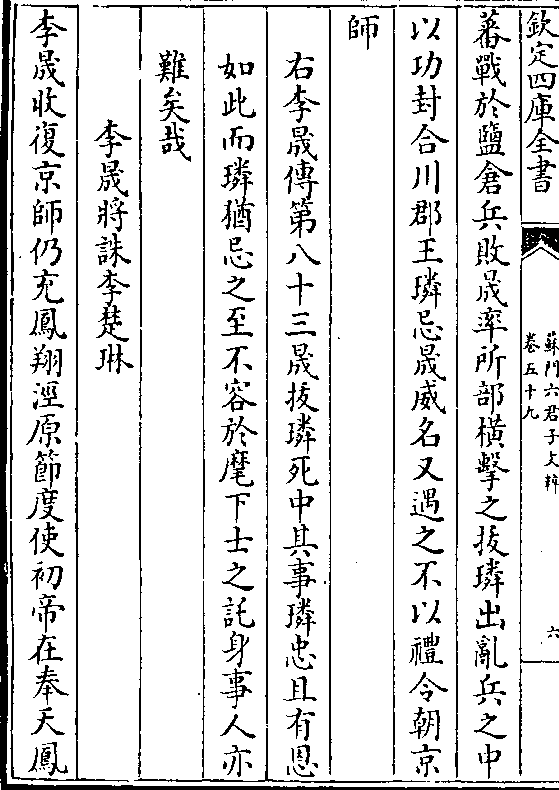 欽定四庫全書
蘇門六君子文粹
卷五十九
六
蕃戰於鹽倉兵敗晟率所部橫擊之拔璘出亂兵之中
以功封合川郡王璘忌晟威名又遇之不以禮令朝京
師
右李晟傳第八十三晟拔璘死中其事璘忠且有恩
如此而璘猶忌之至不容於麾下士之託身事人亦
難矣哉
李晟將誅李楚琳
李晟收復京師仍充鳳翔涇原節度使初帝在奉天鳳